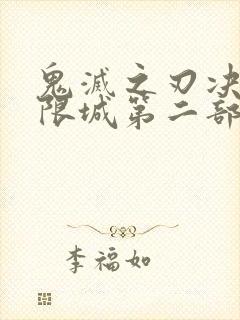 鬼滅之刃决
限城第二部
李福如